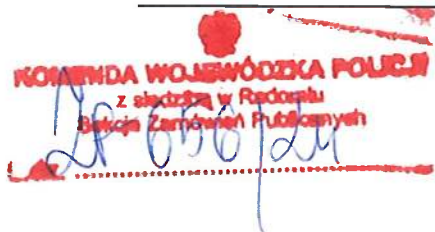 KOMENDA WOJEWÓDZKA POLICJI
z siedzibą w Radomiu
Sekcja Zamówień Publicznych
ZP-656/24